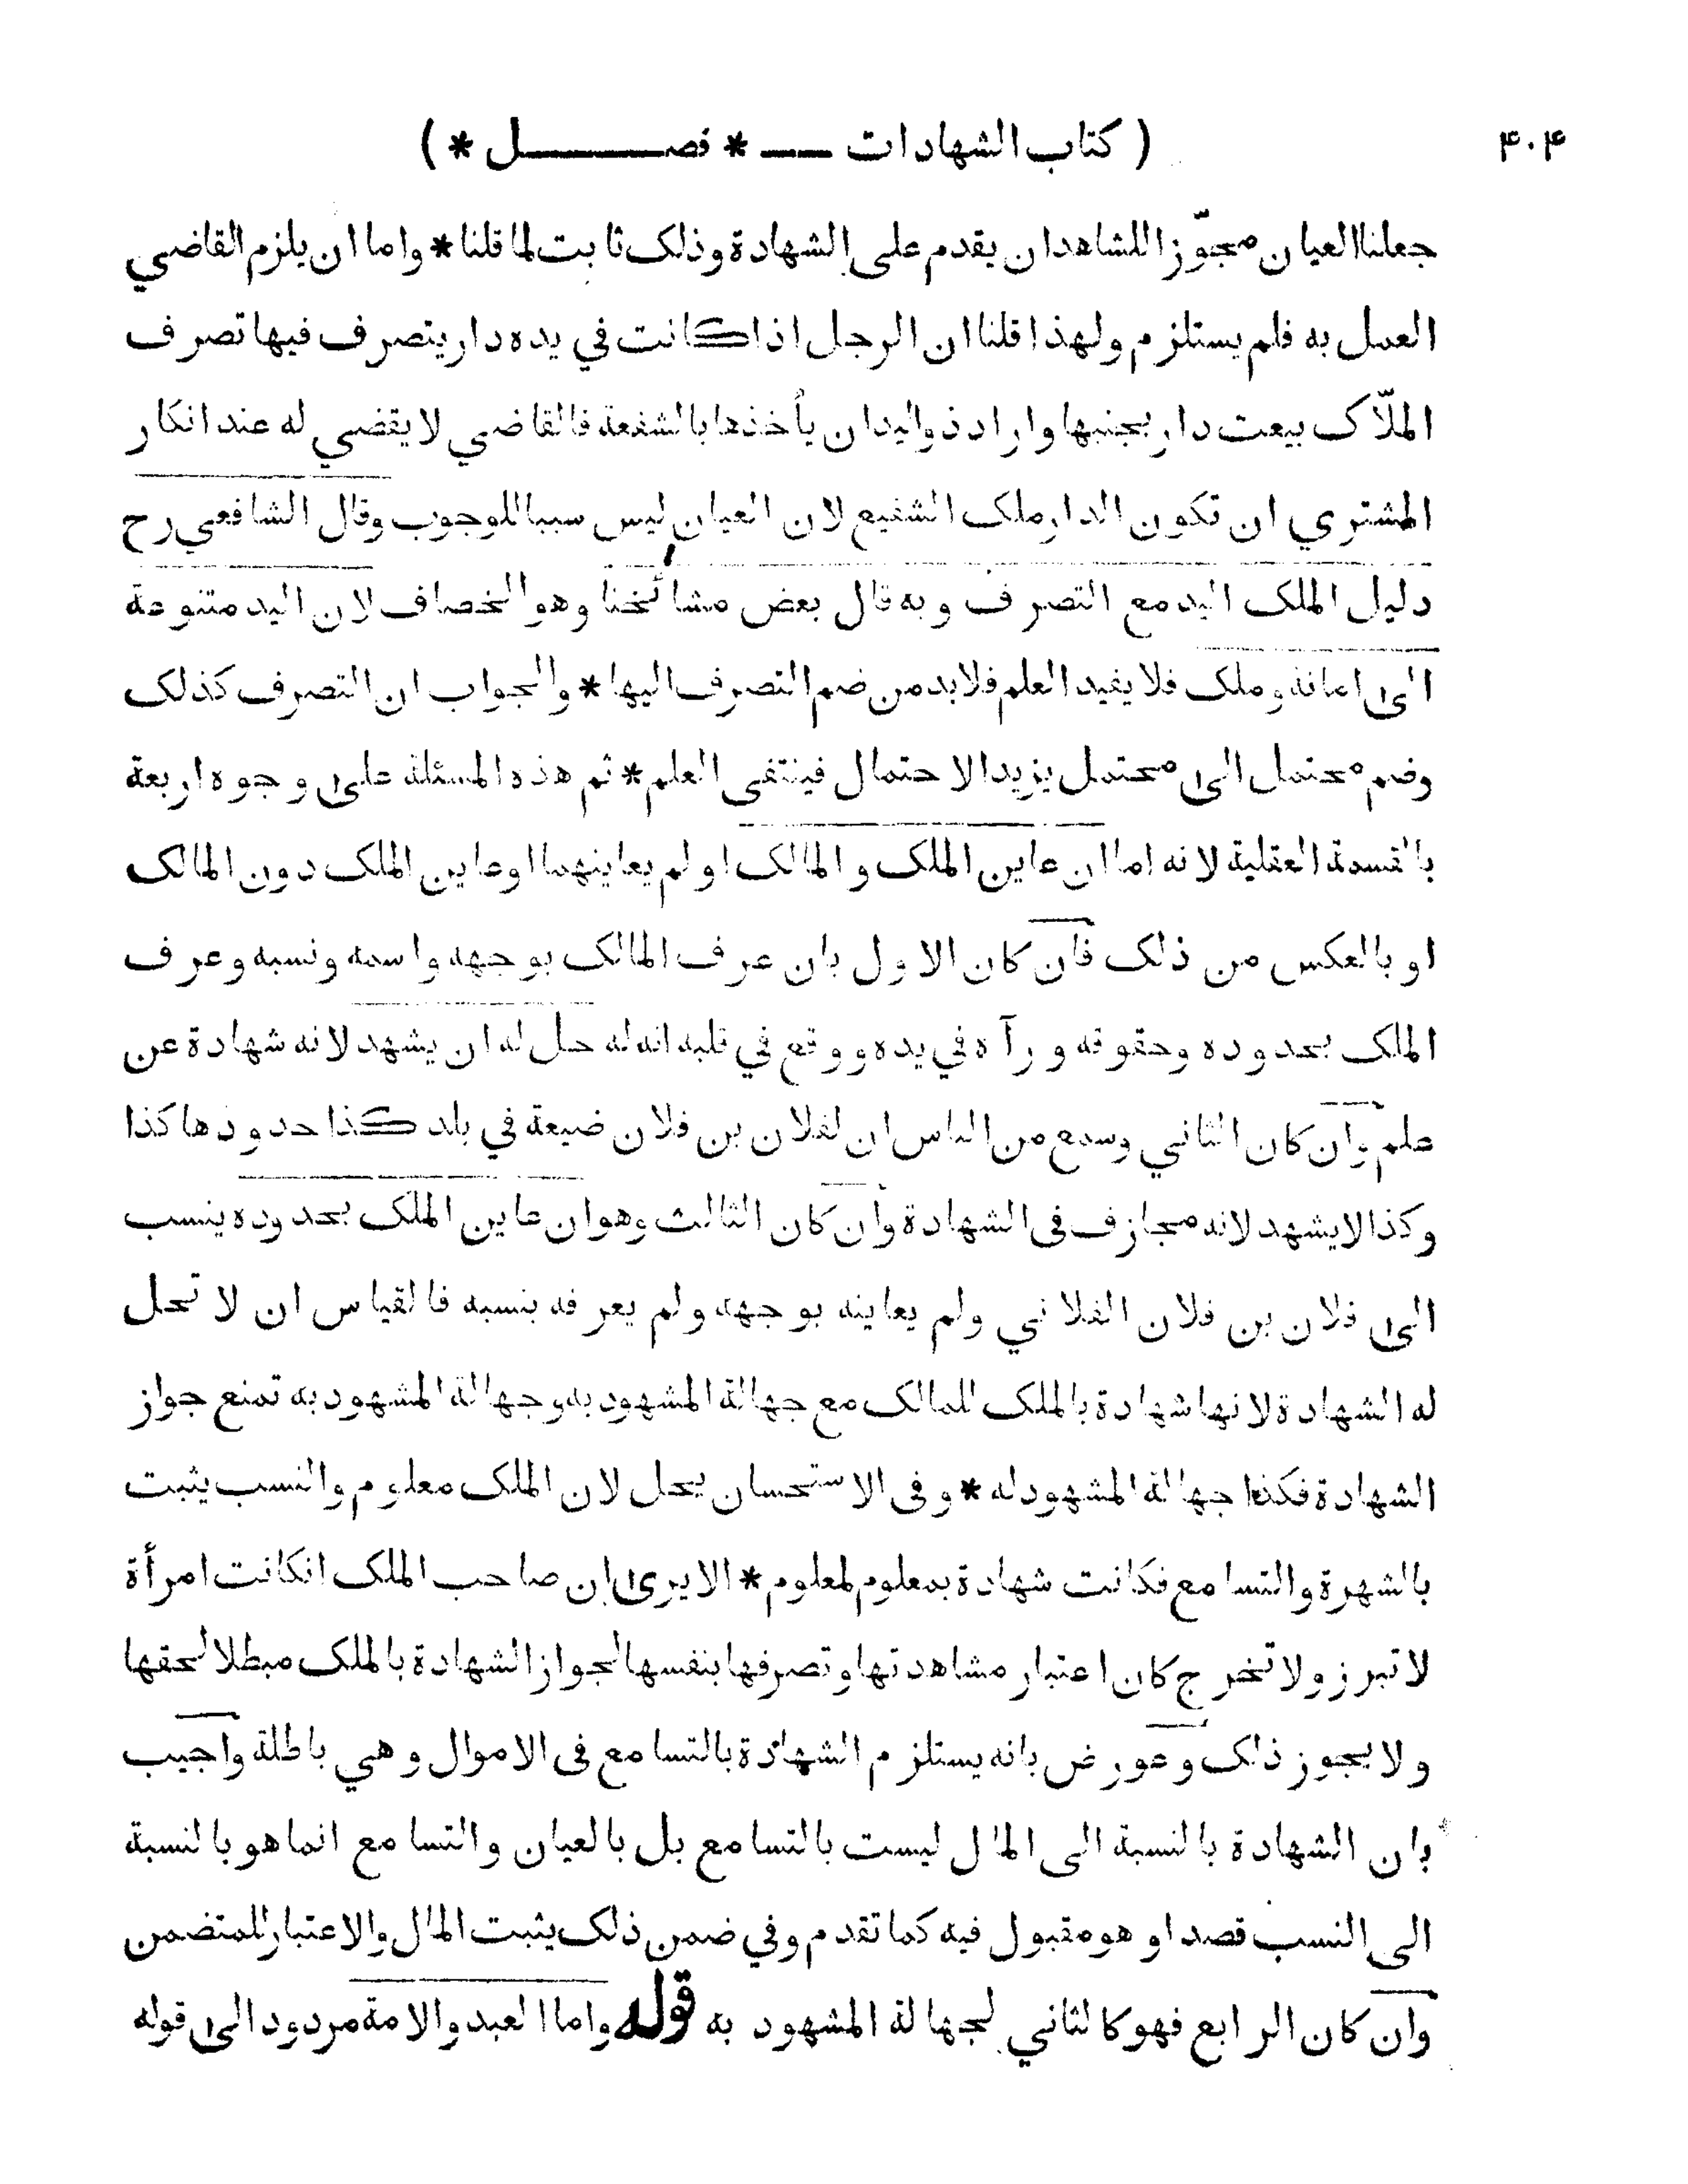 ( كتاب الشهادات — * فصل * ) ۴۰۴
جعلنا العيان مجوّزا للشاهد ان يقدم على الشهادة وذلك ثابت لما قلنا * واما ان يلزم القاضي
العمل به فلم يستلزم ولهذا قلنا ان الرجل اذا كانت في يده دار يتصرف فيها تصرف
الملّاك بيعت دار بجنبها واراد ذو اليد ان يأخذها بالشفعة فالقاضي لا يقضي له عند انكار
المشتري ان تكون الدار ملك الشفيع لان العيان ليس سببا للوجوب وقال الشافعي رح
دليل الملك اليد مع التصرف وبه قال بعض مشائخنا وهو الخصاف لان اليد متنوعة
الى امانة وملك فلا يفيد العلم فلا بد من ضم التصرف اليها * والجواب ان التصرف كذلك
وضم محتمل الى محتمل يزيد الاحتمال فينتفى العلم * ثم هذه المسئلة على وجوه اربعة
بالقسمة العقلية لانه اما ان عاين الملك والمالك او لم يعاينهما او عاين الملك دون المالك
او بالعكس من ذلك فان كان الاول بان عرف المالك بوجهه واسمه ونسبه وعرف
الملك بحدوده وحقوقه ورآه في يده ووقع في قلبه انه له حل له ان يشهد لانه شهادة عن
علم وان كان الثاني وسمع من الناس ان لفلان بن فلان ضيعة في بلد كذا حدودها كذا
وكذا لا يشهد لانه مجازف فى الشهادة وان كان الثالث وهو ان عاين الملك بحدوده ينسب
الى فلان بن فلان الفلاني ولم يعاينه بوجهه ولم يعرفه بنسبه فالقياس ان لا تحل
له الشهادة لانها شهادة بالملك للمالك مع جهالة المشهود به وجهالة المشهود به تمنع جواز
الشهادة فكذا جهالة المشهود له * وفى الاستحسان يحل لان الملك معلوم والنسب يثبت
بالشهرة والتسامع فكانت شهادة بمعلوم لمعلوم * الا يرى ان صاحب الملك انكانت امرأة
لا تبرز ولا تخرج كان اعتبار مشاهدتها وتصرفها بنفسها لجواز الشهادة بالملك مبطلا لحقها
ولا يجوز ذلك وعورض بانه يستلزم الشهادة بالتسامع فى الاموال وهي باطلة واجيب
بان الشهادة بالنسبة الى المال ليست بالتسامع بل بالعيان والتسامع انما هو بالنسبة
الى النسب قصدا وهو مقبول فيه كما تقدم وفي ضمن ذلك يثبت المال والاعتبار للمتضمن
وان كان الرابع فهو كالثاني لجهالة المشهود به قوله واما العبد والامة مردود الى قوله